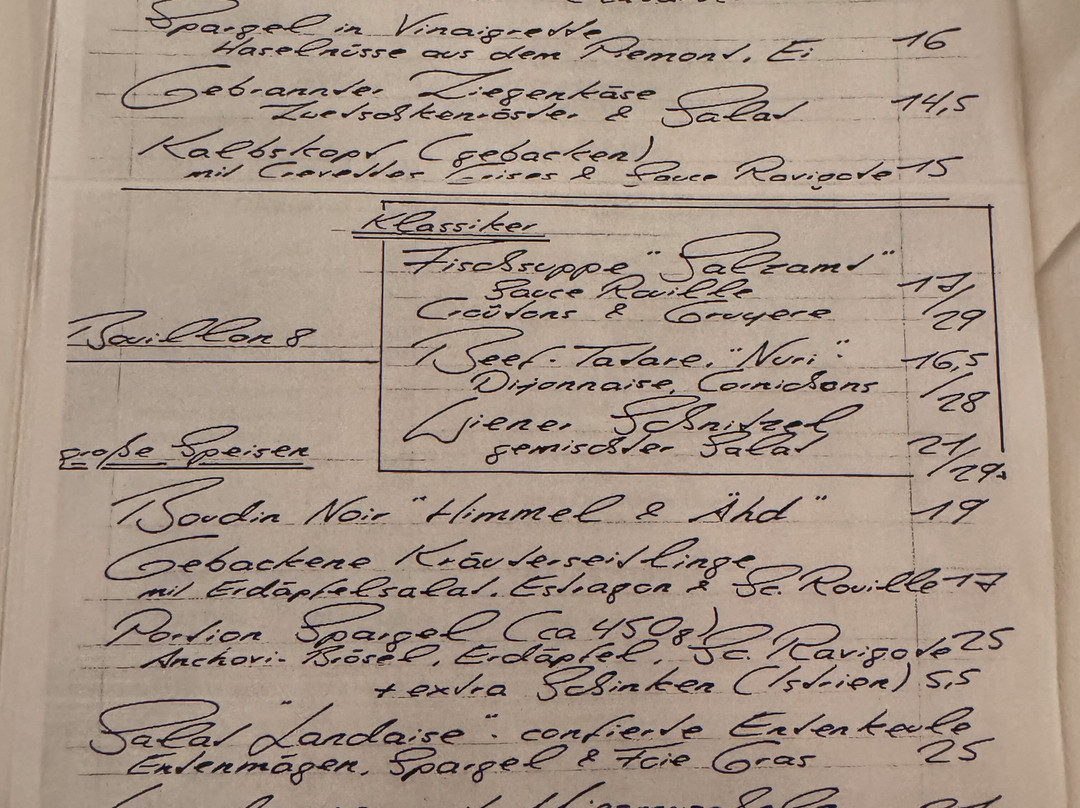 Spargel in Vinaigrette
Haselnüsse aus dem Piemont, Ei 16
Gebrannter Ziegenkäse
Zwetschkenröster & Salat 14,5
Kalbskopf (gebacken)
mit Crevettes Grises & Sauce Ravigote 15
Klassiker
Fischsuppe "Salzamt"
Sauce Rouille 17/
Croûtons & Gruyere 29
Bouillon 8
Beef-Tatare "Nuri": 16,5
Dijonnaise, Cornichons /28
Wiener Schnitzel
gemischter Salat 21/
29,-
große Speisen
Boudin Noir "Himmel & Ähd" 19
Gebackene Kräuterseitlinge
mit Erdäpfelsalat, Estragon & Sc. Rouille 17
Portion Spargel (ca 450g)
Anchovi-Brösel, Erdäpfel, Sc. Ravigote 25
+ extra Schinken (Istrien) 5,5
Salat "Landaise": confierte Entenkeule
Entenmägen, Spargel & Foie Gras 25